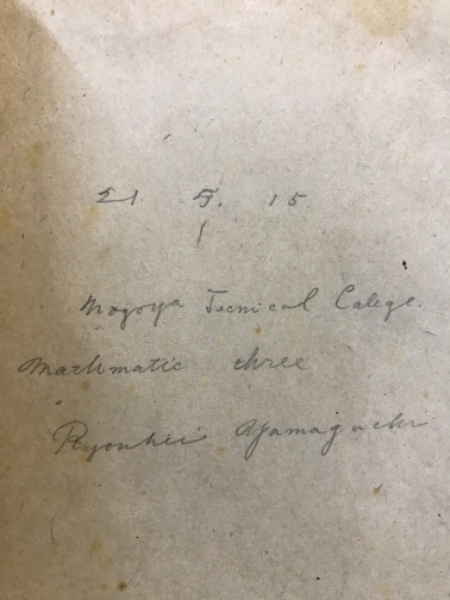 21 5. 15
Nagoya Tecnical Calege.
Mathmatic three
Ryouhei Yamaguchi